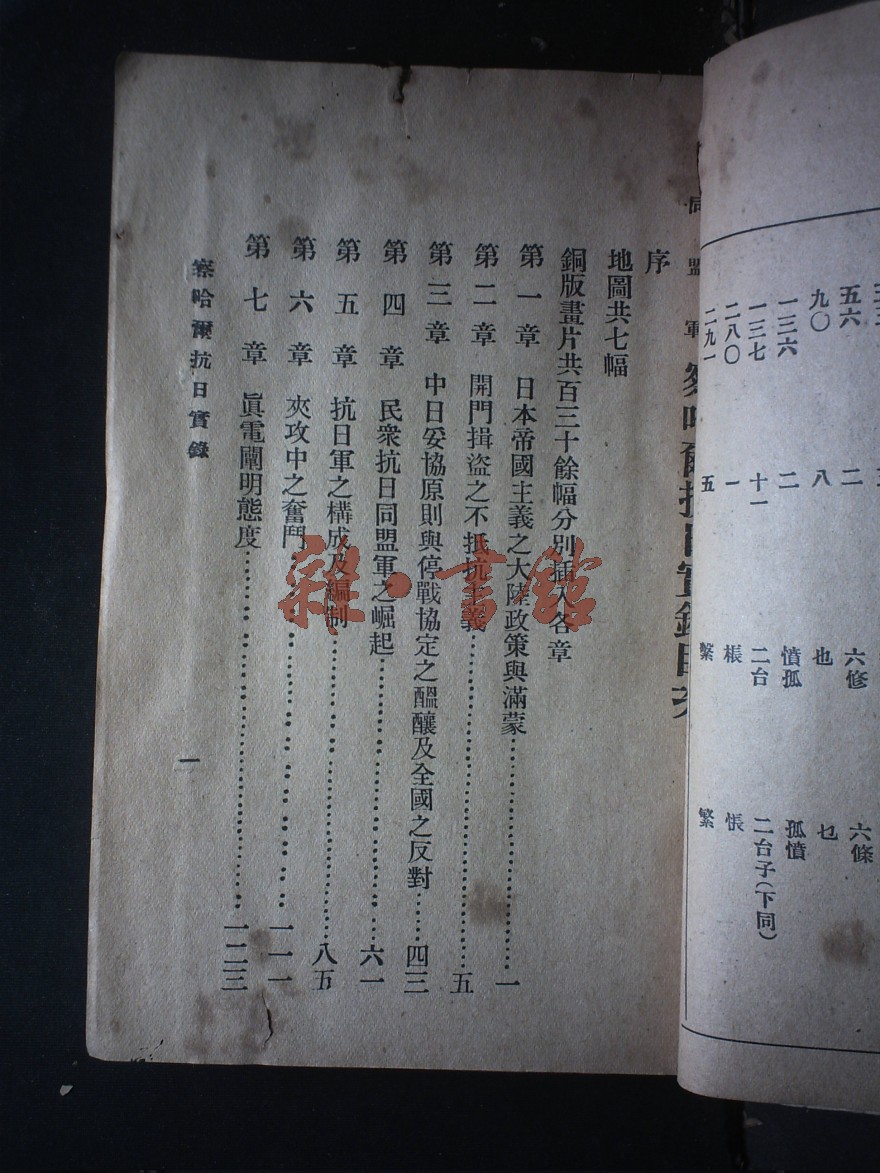 五六 二 六修 六條
九〇 八 也 乜
一三六 二 憤孤 孤憤
一三七 十一 二台 二台子(下同)
二八〇 一 棖 悵
二九一 五 繫 繁
同盟軍 察哈爾抗日實錄目次
序
地圖共七幅
銅版畫片共百三十餘幅分別插入各章
第一章 日本帝國主義之大陸政策與滿蒙……一
第二章 開門揖盜之不抵抗主義……五
第三章 中日妥協原則與停戰協定之醞釀及全國之反對……四三
第四章 民衆抗日同盟軍之崛起……六一
第五章 抗日軍之構成及編制……八五
第六章 夾攻中之奮鬥……一一一
第七章 眞電闡明態度……一二三
察哈爾抗日實錄
一
雜·書館